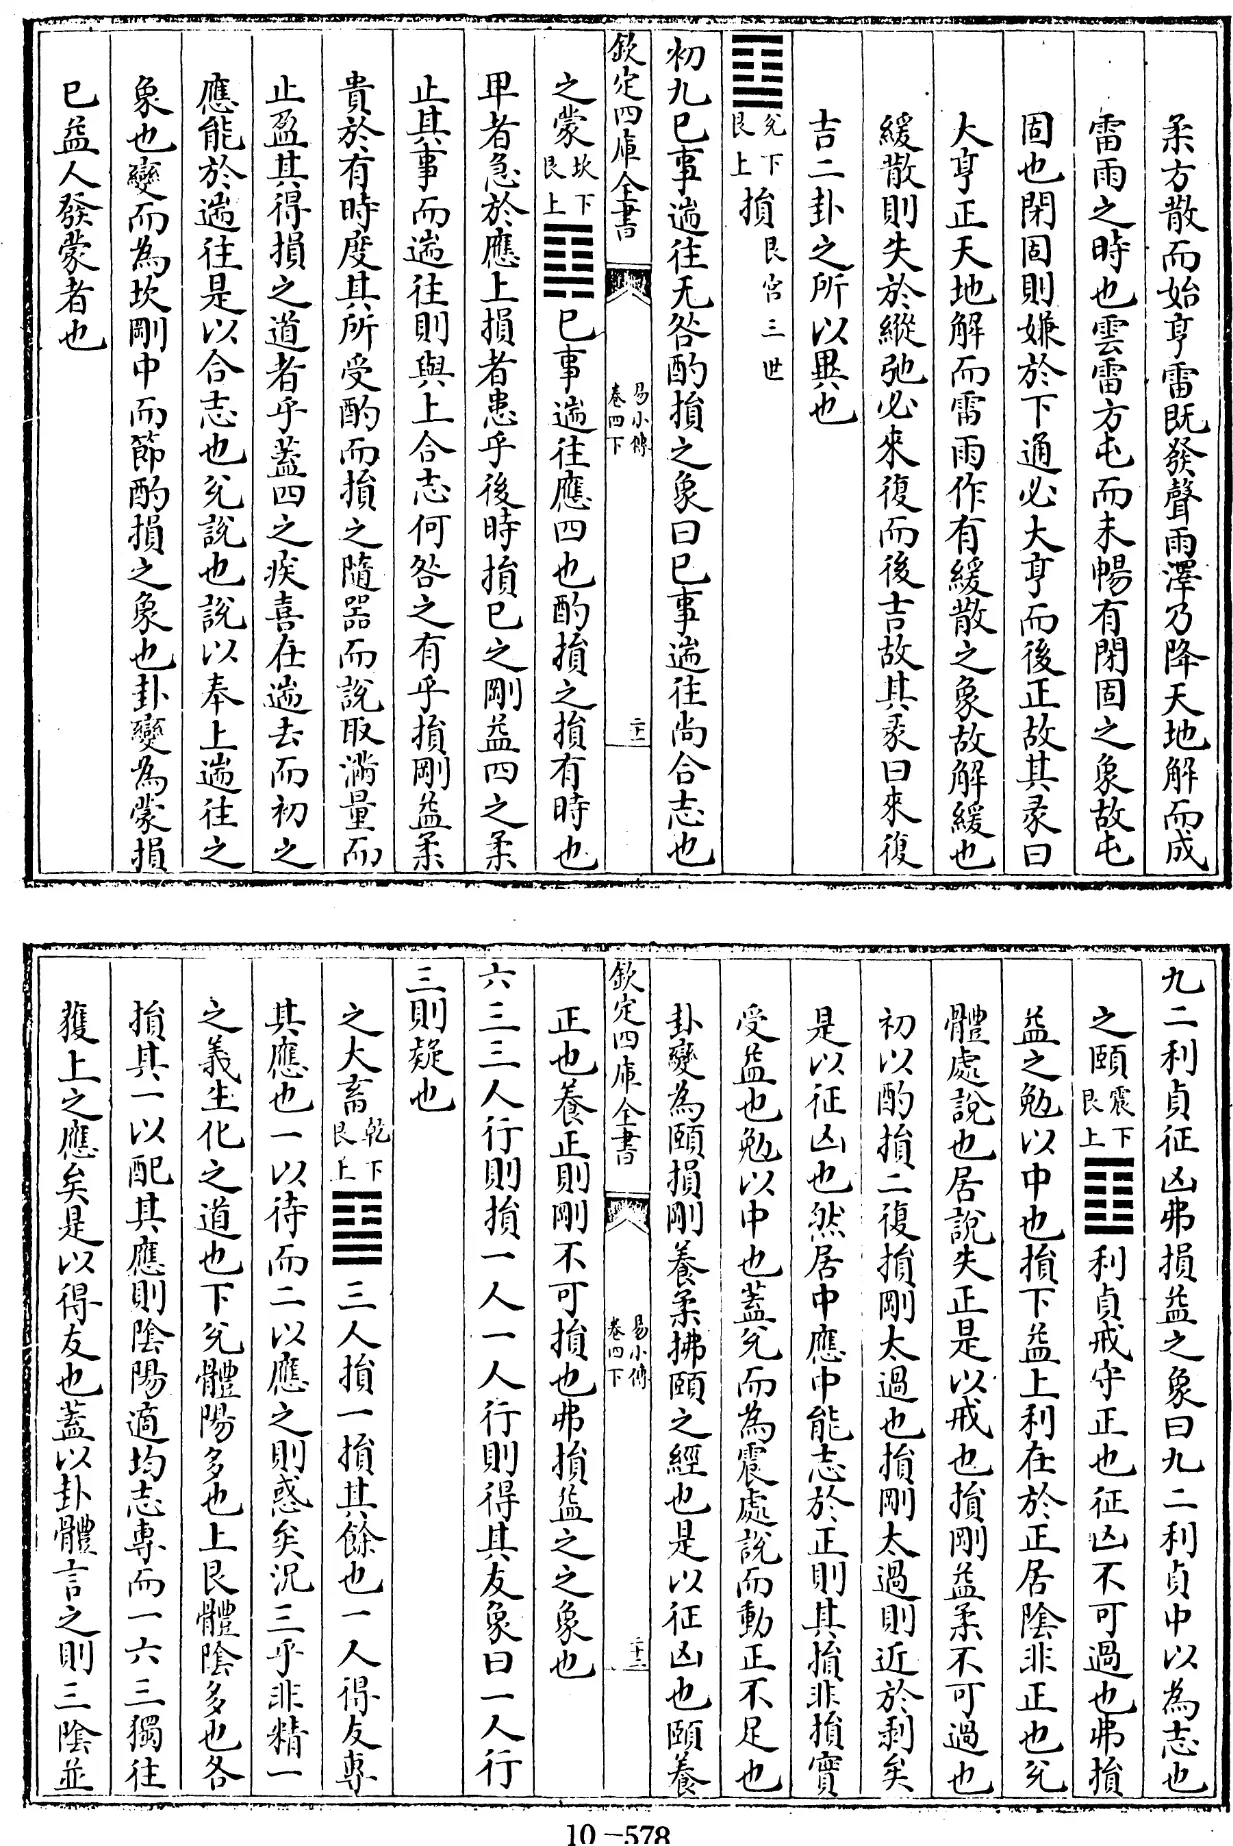 柔方散而始亨雷既發聲雨澤乃降天地解而成
雷雨之時也雲雷方屯而未暢有閉固之象故屯
固也閉固則嫌於下通必大亨而後正故其彖曰
大亨正天地解而雷雨作有緩散之象故解緩也
緩散則失於縱弛必來復而後吉故其彖曰來復
吉二卦之所以異也
䷨兌下艮上損艮宮三世
初九已事遄往无咎酌損之象曰已事遄往尚合志也
欽定四庫全書 易小傳卷四下 二十一
之蒙坎下艮上䷃已事遄往應四也酌損之損有時也
甲者急於應上損者患乎後時損已之剛益四之柔
止其事而遄往則與上合志何咎之有乎損剛益柔
貴於有時度其所受酌而損之隨器而說取滿量而
止盈其得損之道者乎蓋四之疾喜在遄去而初之
應能於遄往是以合志也兌說也說以奉上遄往之
象也變而為坎剛中而節酌損之象也卦變為蒙損
已益人發蒙者也
九二利貞征凶弗損益之象曰九二利貞中以為志也
之頤震下艮上䷚利貞戒守正也征凶不可過也弗損
益之勉以中也損下益上利在於正居陰非正也兌
體處說也居說失正是以戒也損剛益柔不可過也
初以酌損二復損剛太過也損剛太過則近於剥矣
是以征凶也然居中應中能志於正則其損非損實
受益也勉以中也蓋兌而為震處說而動正不足也
卦變為頤損剛養柔拂頤之經也是以征凶也頤養
欽定四庫全書 易小傳卷四下 二十二
正也養正則剛不可損也弗損益之之象也
六三三人行則損一人一人行則得其友象曰一人行
三則疑也
之大畜乾下艮上䷙三人損一損其餘也一人得友專
其應也一以待而二以應之則惑矣況三乎非精一
之義生化之道也下兌體陽多也上艮體陰多也各
損其一以配其應則陰陽適均志專而一六三獨往
獲上之應矣是以得友也蓋以卦體言之則三陰並
10-578